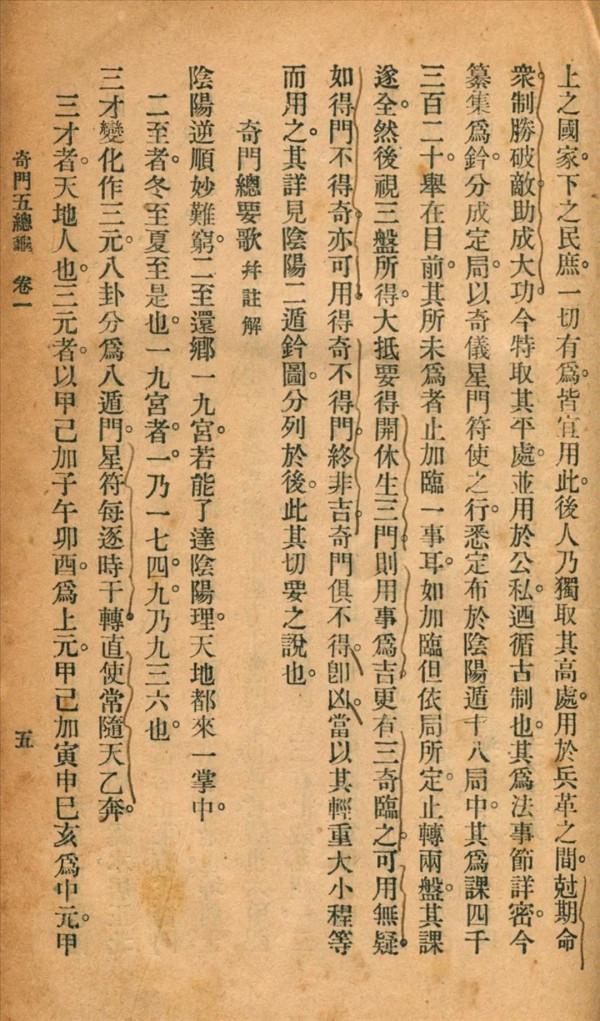 上之國家。下之民庶。一切有爲。皆宜用此。後人乃獨取其高處。用於兵革之間。尅期命
衆。制勝破敵。助成大功。今特取其平處。並用於公私。迺循古制也。其爲法事節詳密。今
纂集爲鈐。分成定局。以奇儀星門符使之行。悉定布於陰陽遁十八局中。其爲課四千
三百二十。舉在目前。其所未爲者。止加臨一事耳。如加臨但依局所定。止轉兩盤。其課
遂全。然後視三盤所得。大抵要得開休生三門。則用事爲吉。更有三奇臨之。可用無疑
如得門不得奇。亦可用。得奇不得門。終非吉。奇門俱不得。卽凶。當以其輕重大小程等
而用之。其詳見陰陽二遁鈐圖。分列於後。此其切要之說也。
奇門總要歌 幷註解
陰陽逆順妙難窮。二至還鄉一九宮。若能了達陰陽理。天地都來一掌中。
二至者。冬至夏至是也。一九宮者。一乃一七四。九乃九三六也。
三才變化作三元。八卦分爲八遁門。星符每逐時干轉。直使常隨天乙奔。
三才者。天地人也。三元者。以甲己加子午卯酉。爲上元。甲己加寅申巳亥爲中元。甲
奇門五總龜 卷一 五